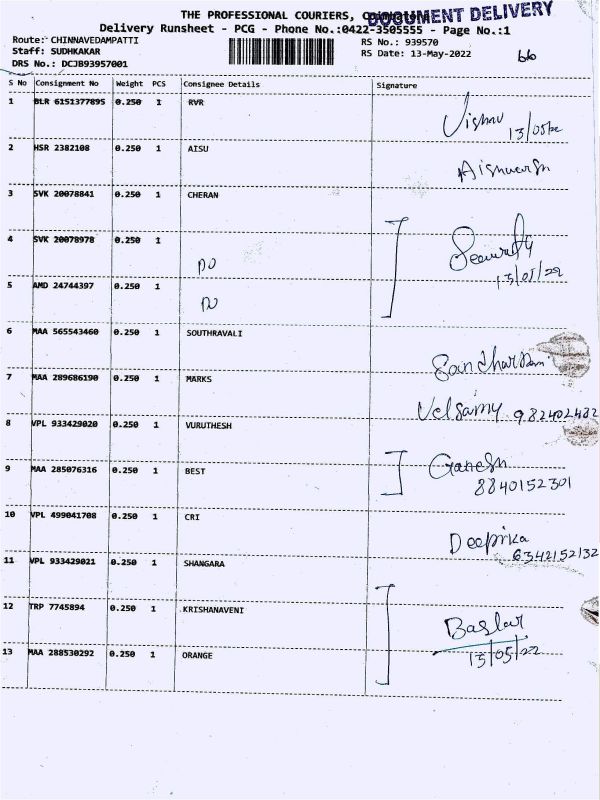 THE PROFESSIONAL COURIERS, Coimbatore
DOCUMENT DELIVERY
Delivery Runsheet - PCG - Phone No.:0422-3505555 - Page No.:1
Route: CHINNAVEDAMPATTI RS No.: 939570
Staff: SUDHKAKAR RS Date: 13-May-2022
DRS No.: DCJB93957001
S No Consignment No Weight PCS Consignee Details Signature
1 BLR 6151377895 0.250 1 RVR Vishnu 13/05/22
2 HSR 2382108 0.250 1 AISU Aishwarya
3 SVK 20078841 0.250 1 CHERAN
4 SVK 20078978 0.250 1 DO Security
13/05/22
5 AMD 24744397 0.250 1 DO
6 MAA 565543460 0.250 1 SOUTHRAVALI
7 MAA 289686190 0.250 1 MARKS Velsamy 982402482
8 VPL 933429020 0.250 1 VURUTHESH
9 MAA 285076316 0.250 1 BEST Ganesh
8840152301
10 VPL 499041708 0.250 1 CRI Deepika
6342152132
11 VPL 933429021 0.250 1 SHANGARA
12 TRP 7745894 0.250 1 KRISHANAVENI
13 MAA 288530292 0.250 1 ORANGE 13/05/22